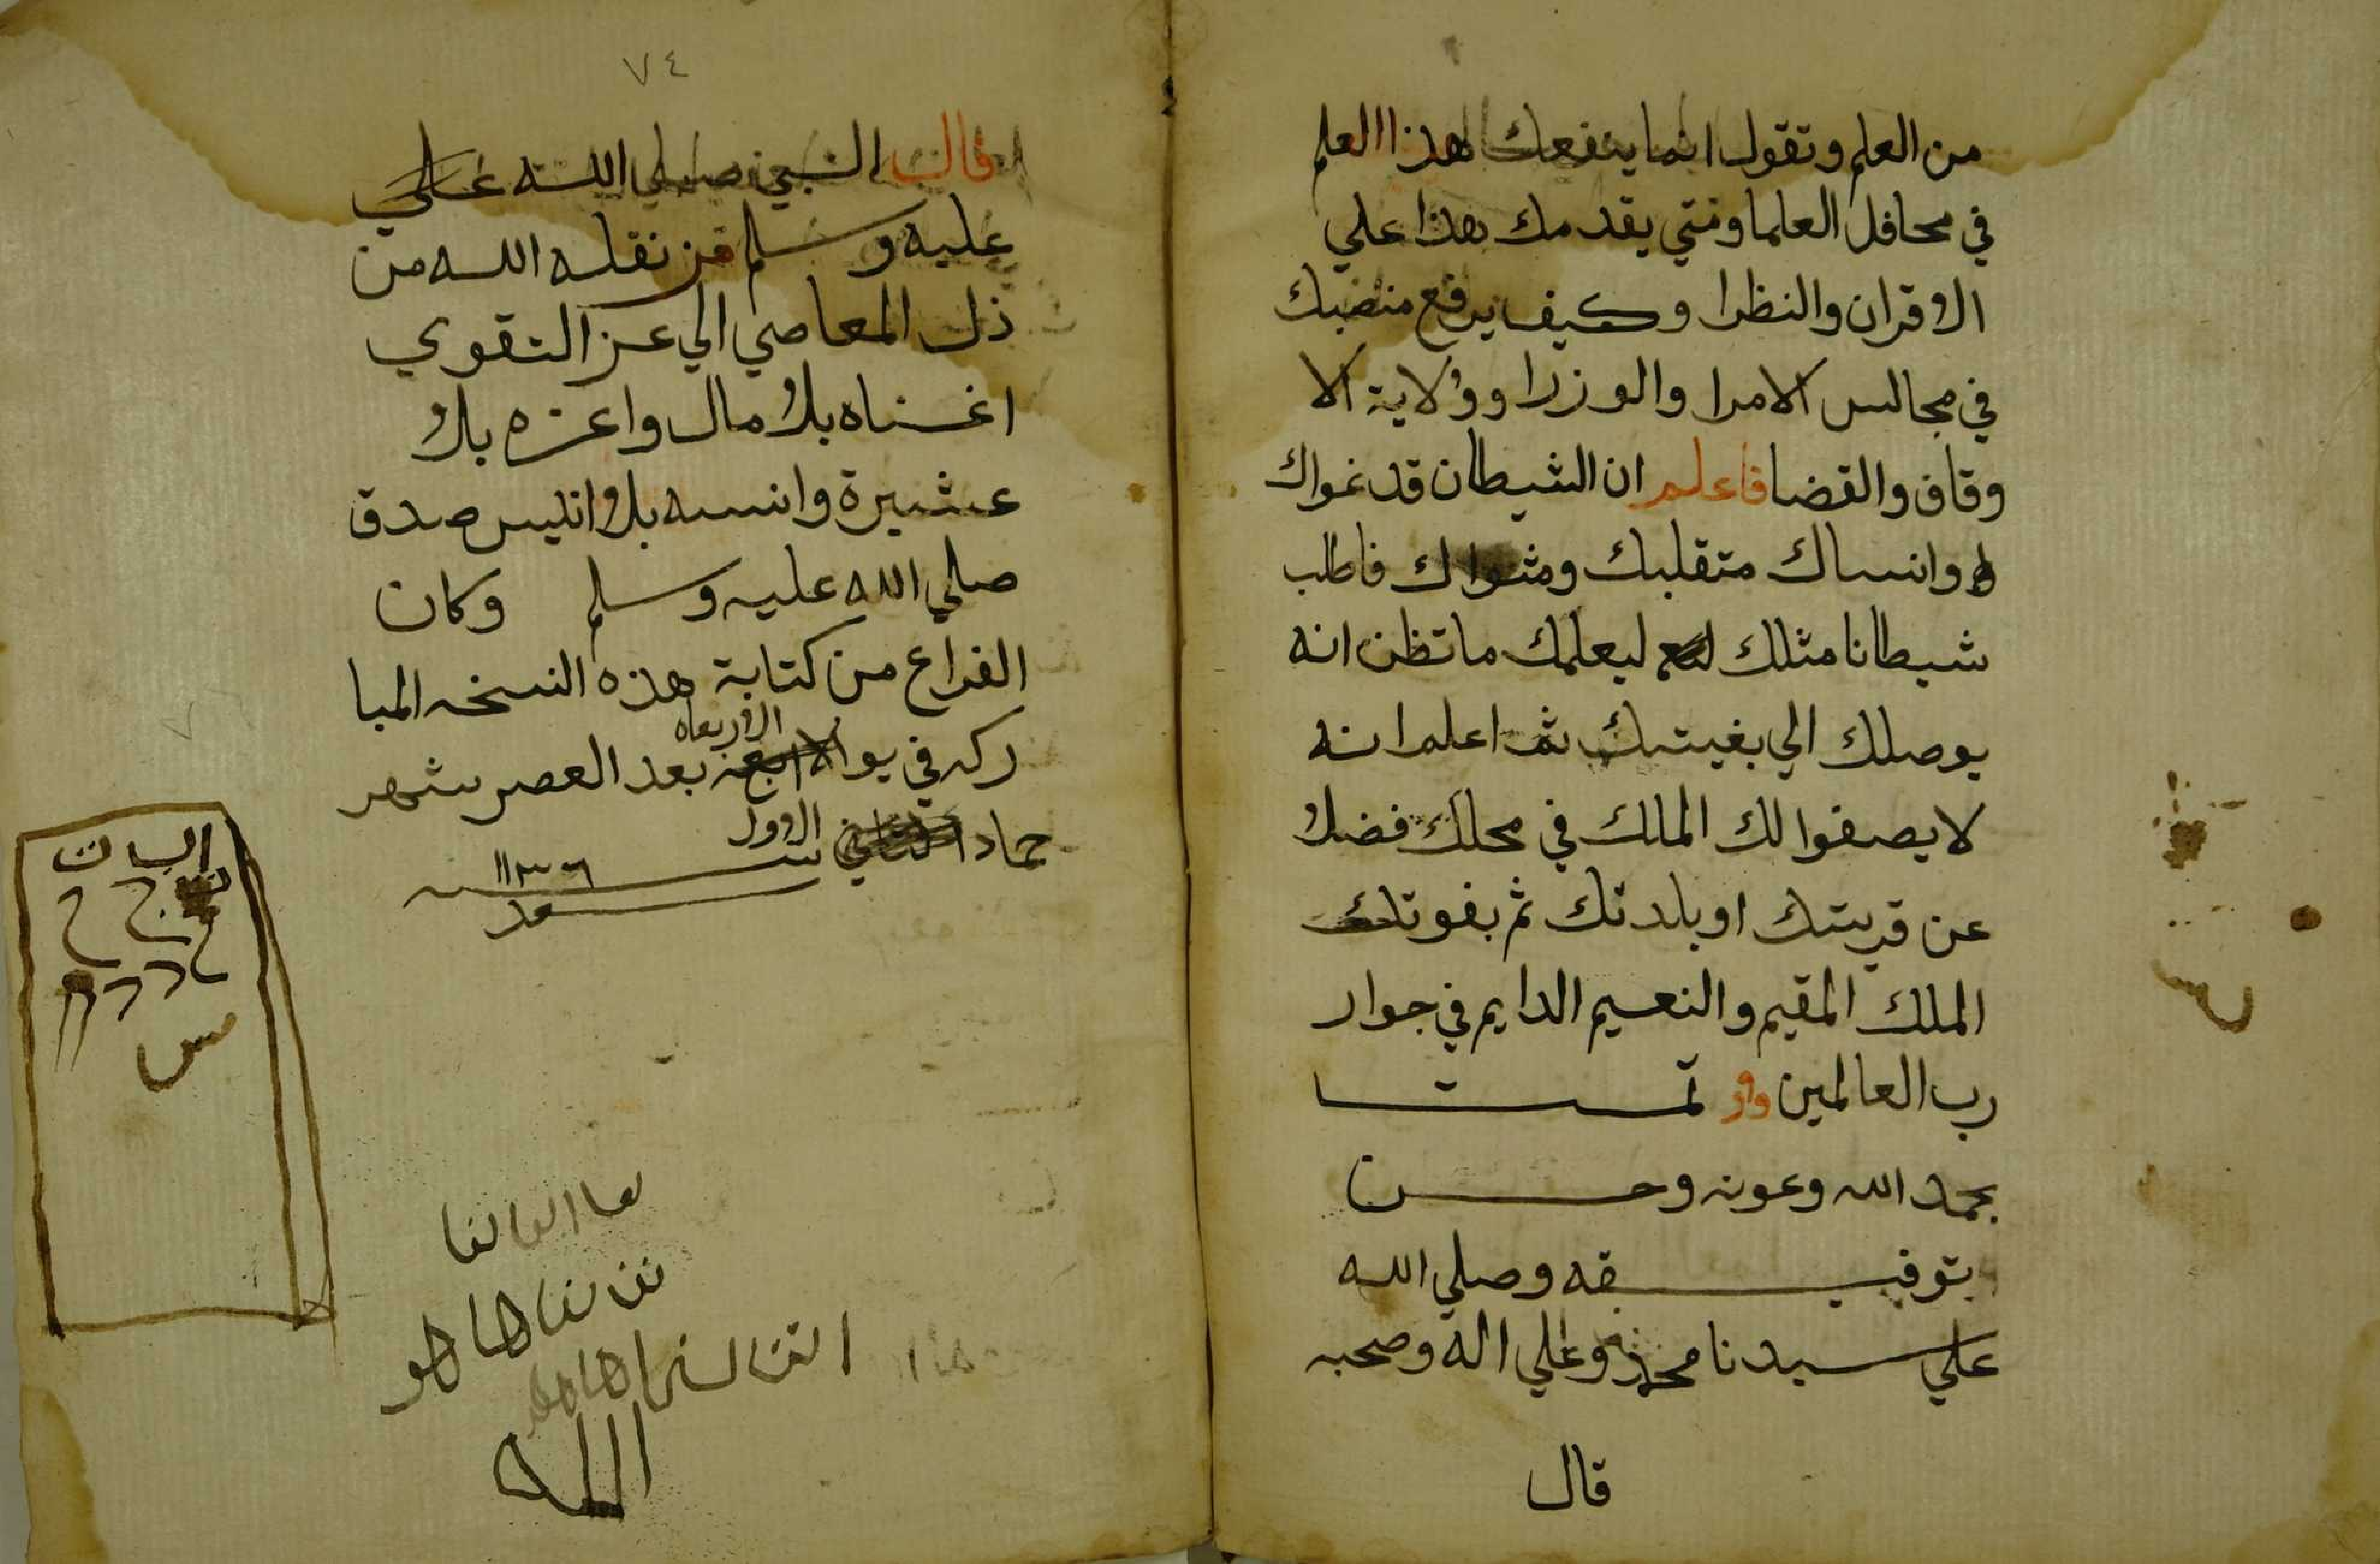 من العلم وتقول انما ينفعك هذا العلم
في محافل العلما ومتي يقدمك هذا علي
الاقران والنظرا وكيف يرفع منصبك
في مجالس الامرا والوزرا وولاية الا
وقاف والقضا فاعلم ان الشيطان قد غواك
وانساك متقلبك ومثواك فاطلب
شيطانا مثلك ليعلمك ما تظن انه
يوصلك الي بغيتك ثم اعلم انه
لا يصفوا لك الملك في محلك فضلا
عن قريتك او بلدتك ثم يفوتك
الملك المقيم والنعيم الدايم في جوار
رب العالمين تمت
بحمد الله وعونه وحسن
توفيقه وصلي الله
علي سيدنا محمد وعلي اله وصحبه
قال
٧٤
قال النبي صلي الله علي
عليه وسلم من نقله الله من
ذل المعاصي الي عز التقوي
اغناه بلا مال واعزه بلا
عشيرة وانسه بلا انيس صدق
صلي الله عليه وسلم وكان
الفراغ من كتابة هذه النسخه المبا
ركه في يو الاربعاه بعد العصر شهر
جماد الاول سنة ١١٣٦
الله
س